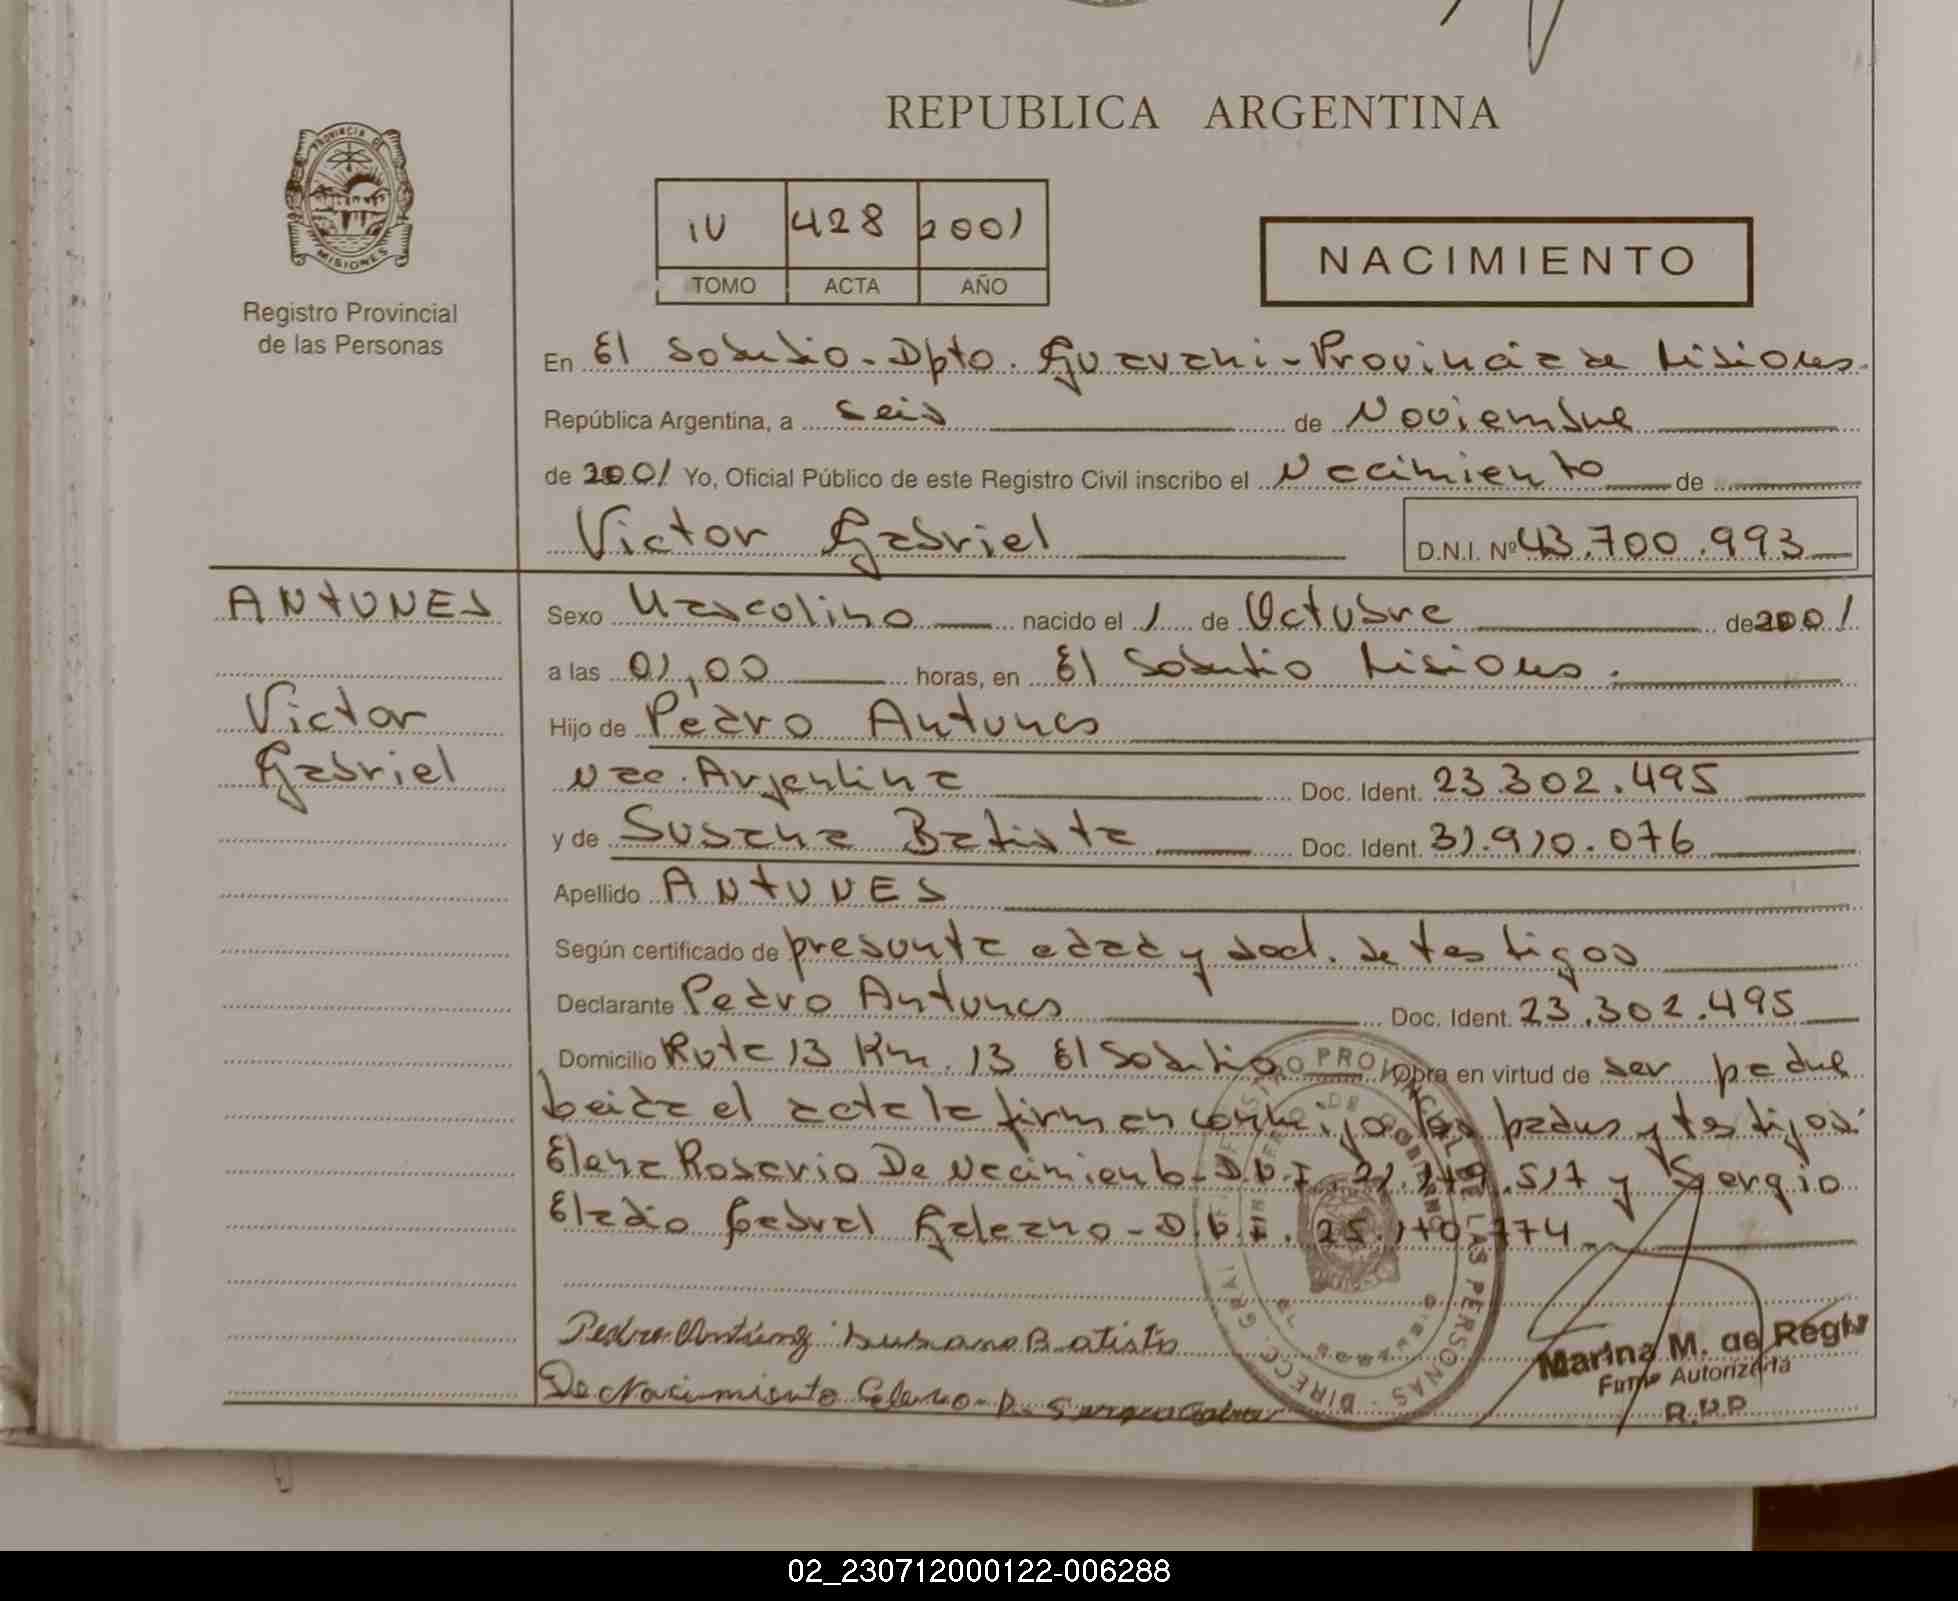 REPUBLICA ARGENTINA
PROVINCIA DE
MISIONES
Registro Provincial
de las Personas
IV 428 2001
TOMO ACTA AÑO
NACIMIENTO
En El Soberbio - Dpto. Guarani - Provincia de Misiones.
República Argentina, a seis de Noviembre
de 2001 Yo, Oficial Público de este Registro Civil inscribo el Nacimiento de
Victor Gabriel D.N.I. Nº 43.700.993
ANTUNES
Victor
Gabriel
Sexo Masculino nacido el 1 de Octubre de 2001
a las 01,00 horas, en El Soberbio Misiones.
Hijo de Pedro Antunes
Nac. Argentina Doc. Ident. 23.302.495
y de Susana Batista Doc. Ident. 31.910.076
Apellido ANTUNES
Según certificado de presunta edad y decl. de testigos
Declarante Pedro Antunes Doc. Ident. 23.302.495
Domicilio Ruta 13 Km. 13 El Soberbio Obra en virtud de ser padre
Leida el acta la firman conmigo los padres y testigos:
Elena Rosario De Nacimiento - D.N.I. 517 y Sergio
Eladio Cabral Galeano - D.N.I. 25.170.774
Pedro Antunez Susana Batista
De Nacimiento
DIRECC. GRAL. PROVINCIAL DE LAS PERSONAS
Marina M. de
Firma Autorizada
R.P.P
02_230712000122-006288